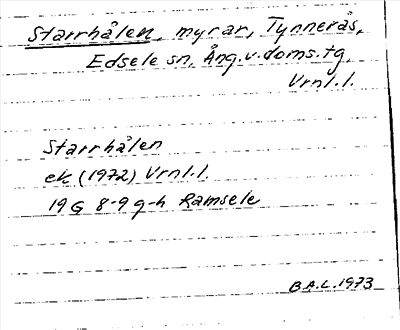 Starrhålen, myrar, Tynnerås,
Edsele sn, Ång.v.doms.tg,
Vrnl.l.
Starrhålen
ek (1972) Vrnl.l.
19G 8-9 g-h Ramsele
B.A.L. 1973